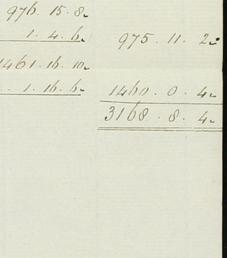 976 . 15 . 8
1 . 4 . 6
975 . 11 . 2
1461 . 16 . 10
. 1 . 16 . 6
1460 . 0 . 4
3168 . 8 . 4